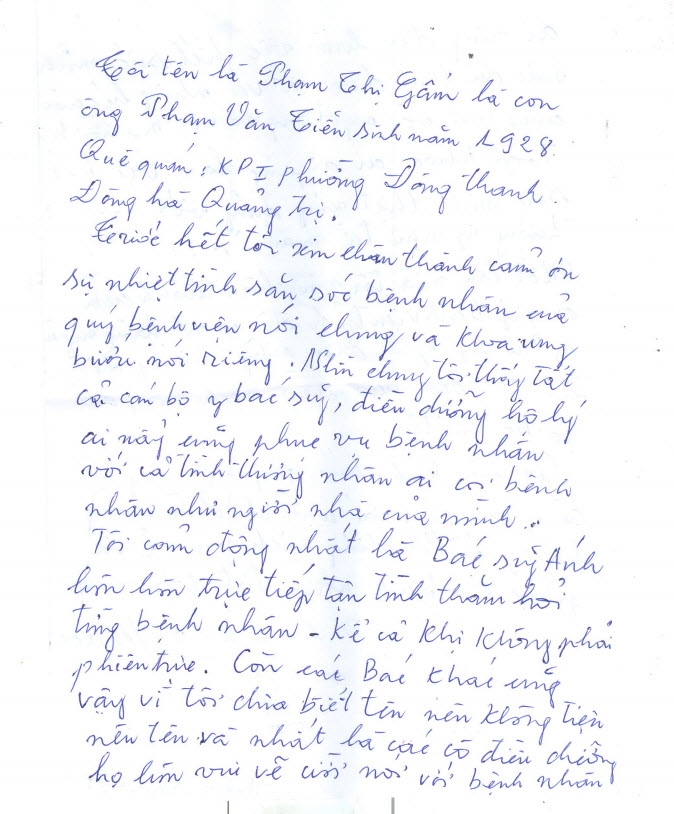 Tôi tên là Phạm Thị Gấm là con
ông Phạm Văn Tiến sinh năm 1928.
Quê quán: KPI phường Đông thanh.
Đông hà Quảng trị.
Trước hết tôi xin chân thành cảm ơn
sự nhiệt tình săn sóc bệnh nhân của
quý bệnh viện nói chung và khoa ung
bướu nói riêng. Nhìn chung tôi thấy tất
cả cán bộ y bác sỹ, điều dưỡng hộ lý
ai nấy cũng phục vụ bệnh nhân
với cả tình thương nhân ai coi bệnh
nhân như người nhà của mình..
Tôi cảm động nhất là Bác sỹ Ánh
luôn luôn trực tiếp tận tình thăm hỏi
từng bệnh nhân - kể cả khi không phải
phiên trực. Còn các Bác khác cũng
vậy vì tôi chưa biết tên nên không tiện
nêu tên và nhất là các cô điều dưỡng
họ luôn vui vẽ cười nói với bệnh nhân